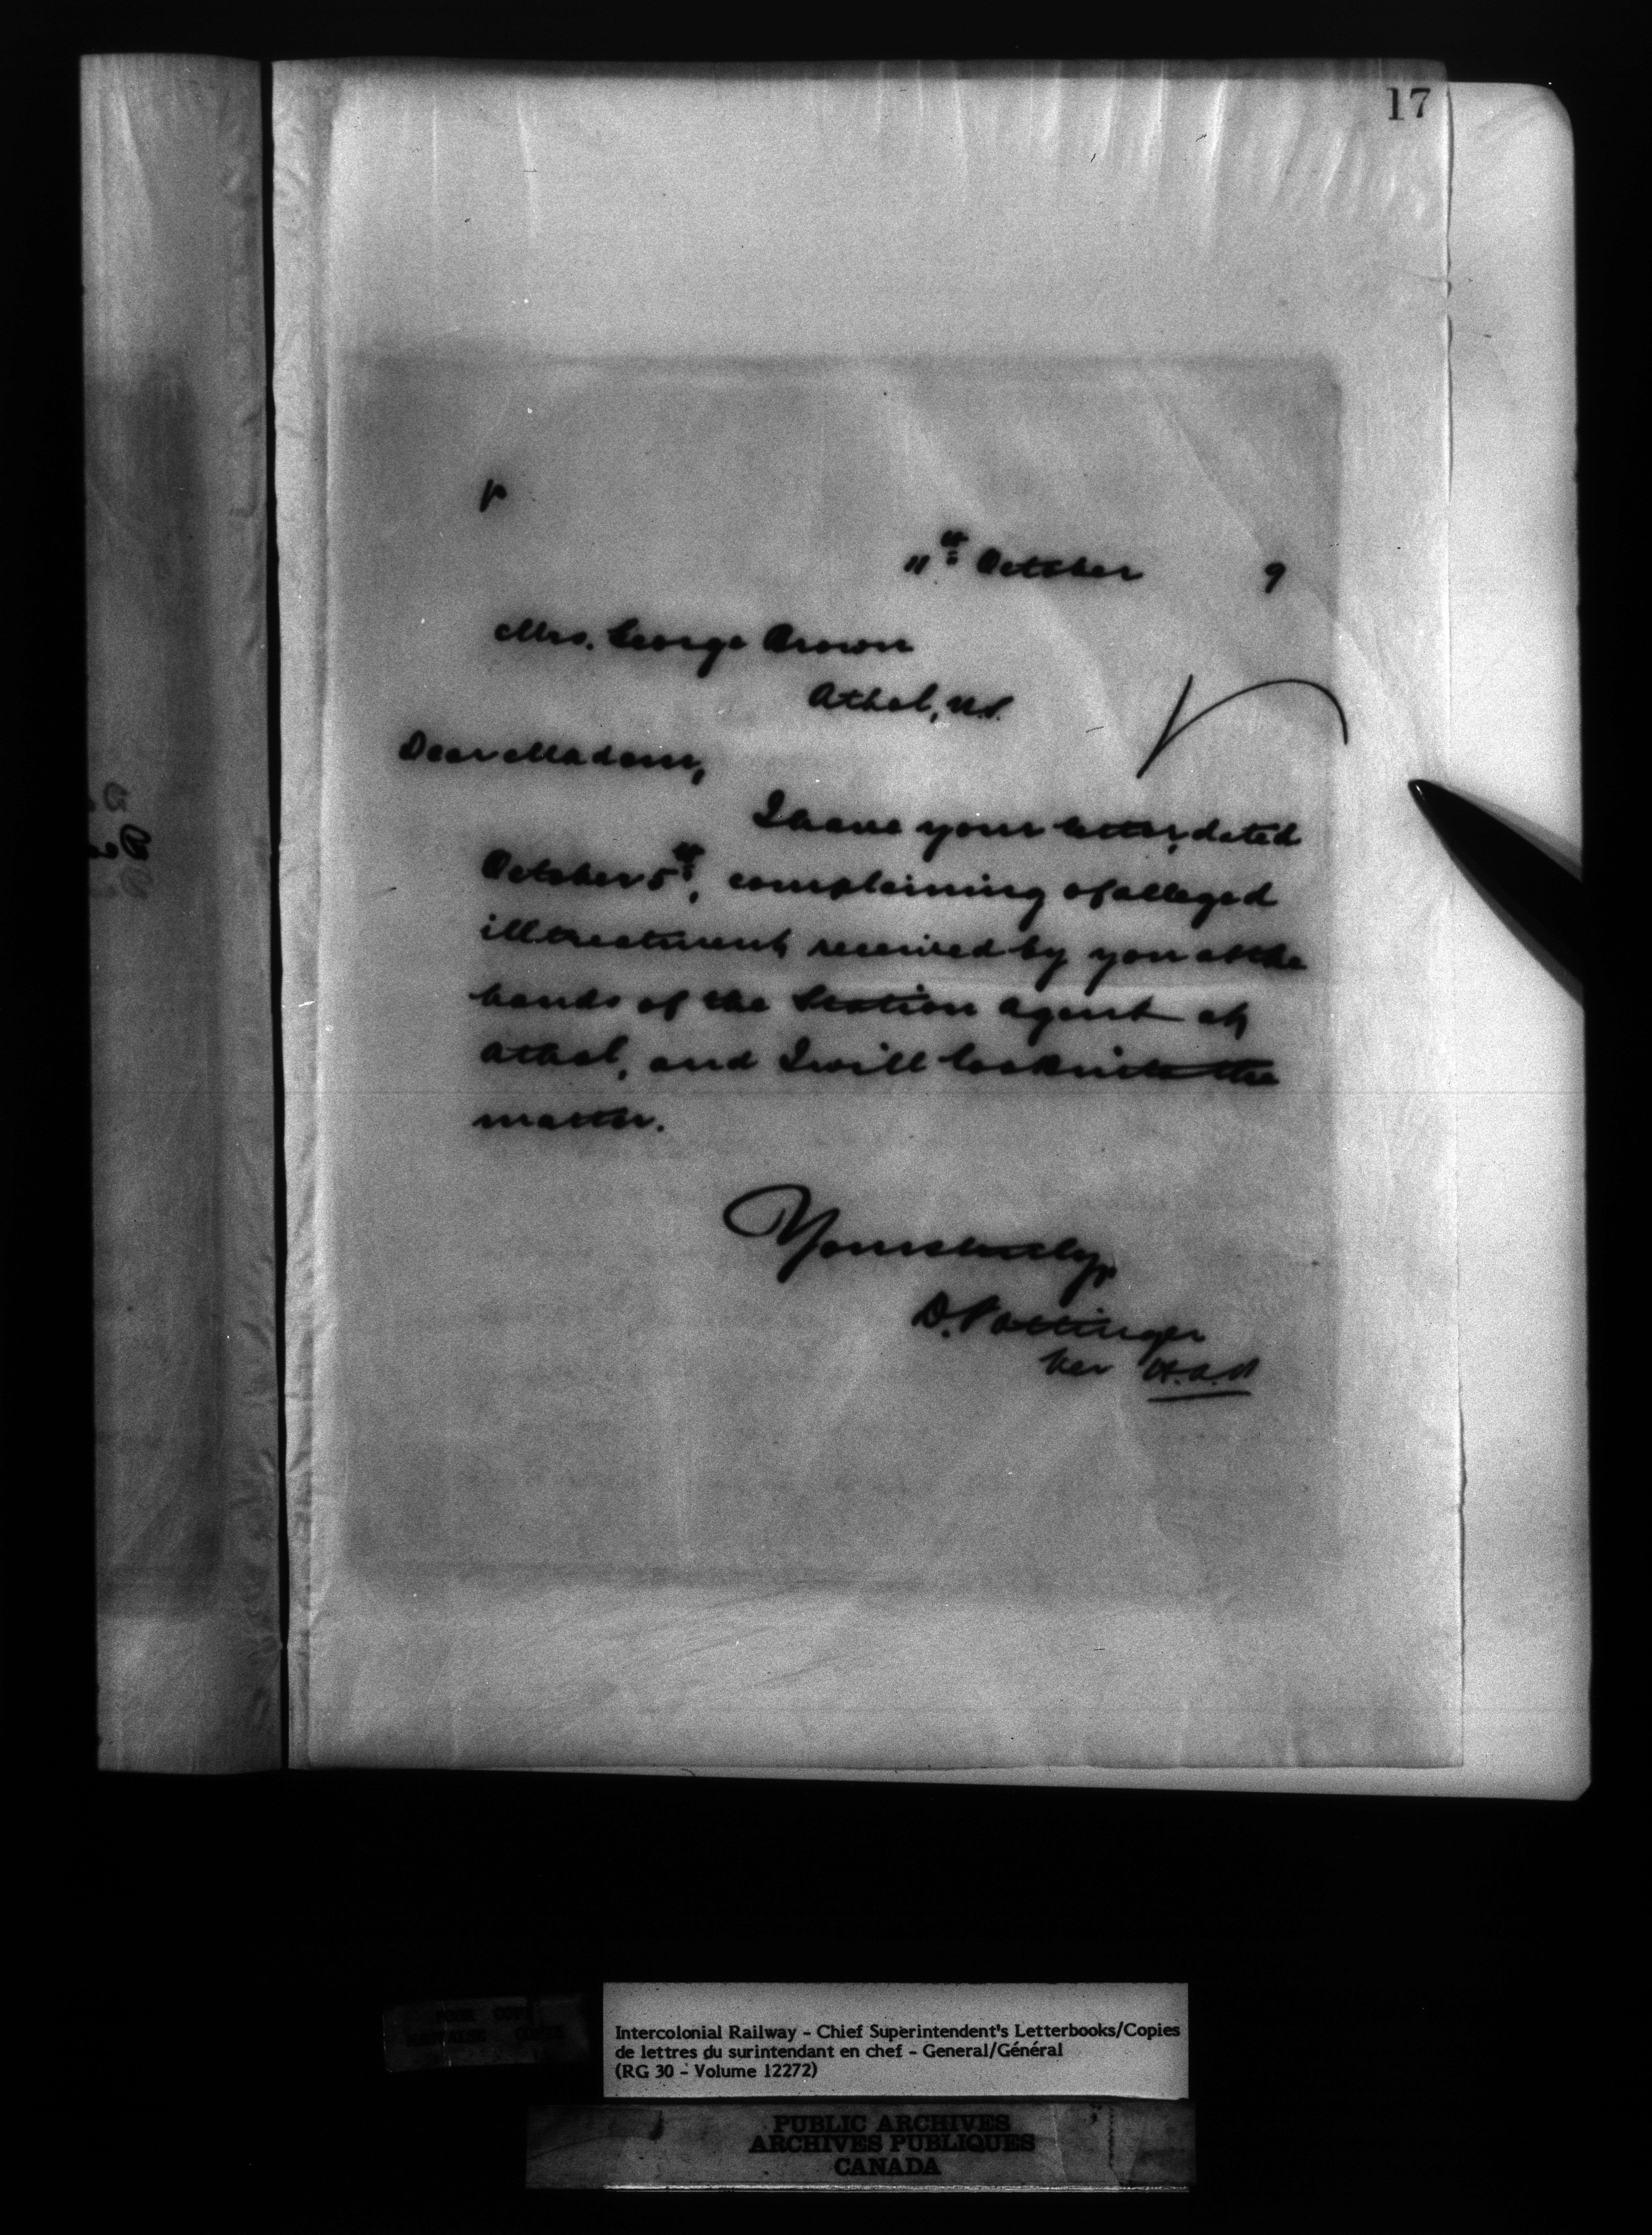 17
11th October 9
Mrs. George Brown
Athol, N.S.
Dear Madam,
I have your letter, dated
October 5th, complaining of alleged
illtreatment received by you at the
hands of the Station Agent at
Athol, and I will look into the
matter.
Yours truly,
D. Pottinger
Per
Intercolonial Railway - Chief Superintendent's Letterbooks/Copies
de lettres du surintendant en chef - General/Général
(RG 30 - Volume 12272)
PUBLIC ARCHIVES
ARCHIVES PUBLIQUES
CANADA